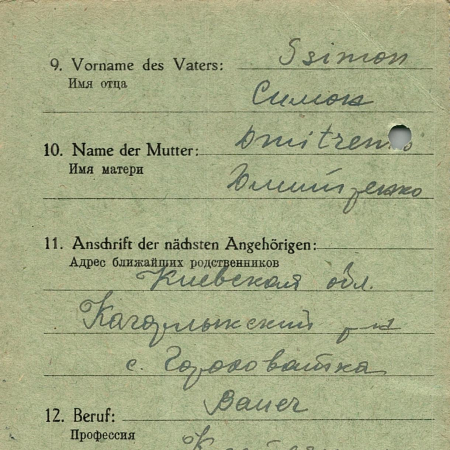 9. Vorname des Vaters: Ssimon
Имя отца
Симон
10. Name der Mutter: Dmitrenko
Имя матери
Дмитренко
11. Anschrift der nächsten Angehörigen:
Адрес ближайших родственников
Киевская обл.
Кагарлыкский р-н
с. Гороховатка
Bauer
12. Beruf:
Профессия